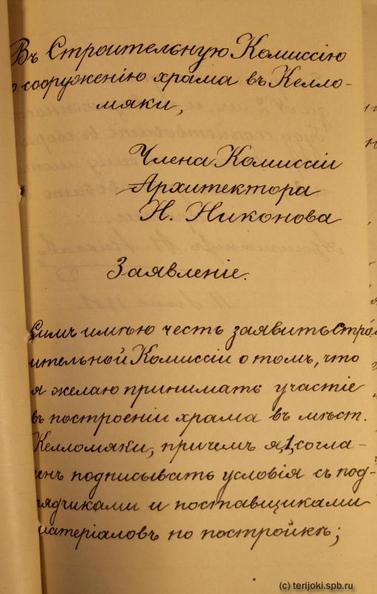 Въ Строительную Комиссію
о сооруженію храма въ Келло-
мяки,
Члена Комиссіи
Архитектора
Н. Никонова
Заявленіе.
Симъ имѣю честь заявить Стро
ительной Комиссіи о томъ, что
я желаю принимать участіе
въ построеніи храма въ мѣст.
Келломяки, причемъ я, 1, согла-
сенъ подписывать условія съ под-
рядчиками и поставщиками
матеріаловъ по постройкѣ;
(c) terijoki.spb.ru